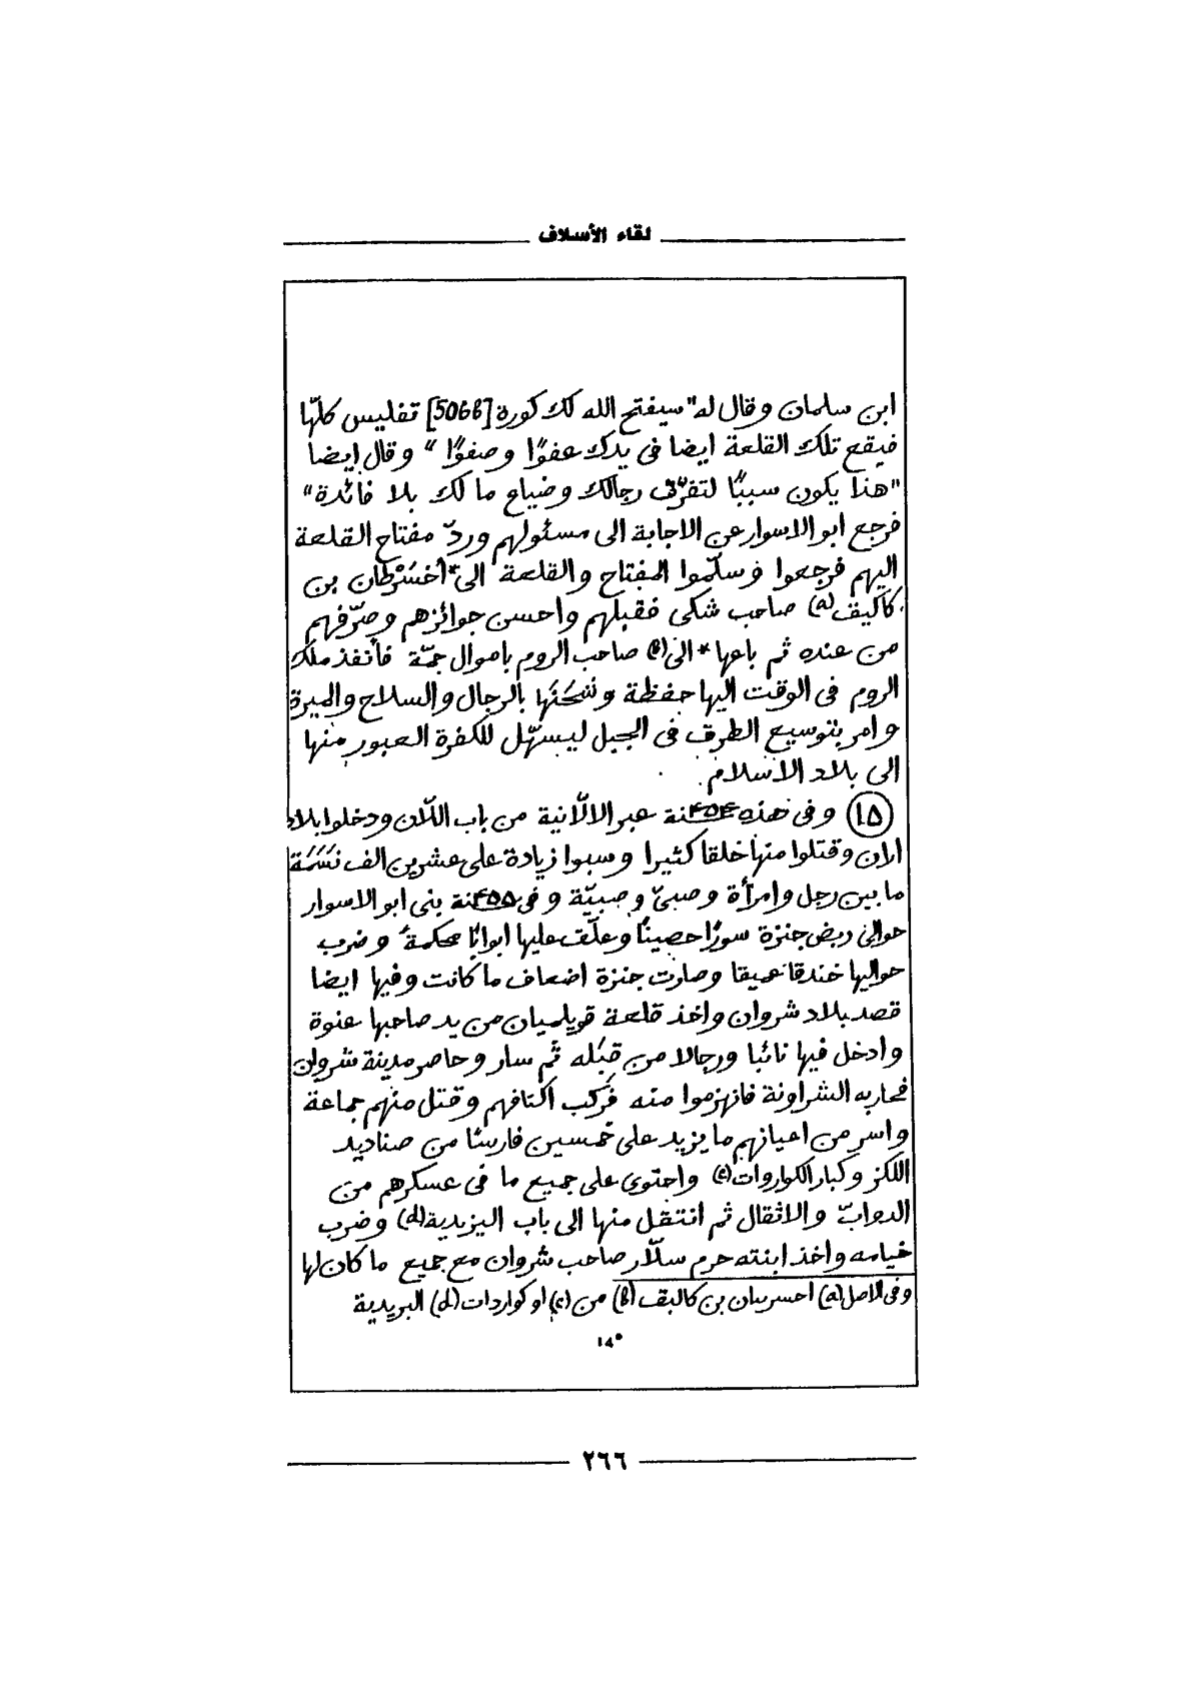 لقاء الأسلاف
ابن سلمان وقال له "سيفتح الله لك كورة [506b] تفليس كلّها
فيقع تلك القلعة ايضا فى يدك عفوًا وصفوًا" وقال ايضا
"هذا يكون سببًا لتفرّق رجالك وضياع مالك بلا فائدة"
فرجع ابو الاسوار عن الاجابة الى مسئولهم وردّ مفتاح القلعة
اليهم فرجعوا وسلّموا المفتاح والقلعة الى *أخسَرْطان بن
كاكيق(a) صاحب شكى فقبلهم واحسن جوائزهم وصرّفهم
من عنده ثم باعها *الى(b) صاحب الروم باموال جمّة فأنفذ ملك
الروم فى الوقت اليها حفظة وشَحَنَها بالرجال والسلاح والميرة
وامر بتوسيع الطرق فى الجبل ليسهّل للكفرة العبور منها
الى بلاد الاسلام.
(١٥) وفى هذه سنة ۴۵۴ عبر الالّانية من باب اللّان ودخلوا بلاد
اران وقتلوا منها خلقا كثيرا وسبوا زيادة على عشرين الف نَسَمَة
ما بين رجل وامرأة وصبىّ وصبيّة وفى سنة ۴۵۵ بنى ابو الاسوار
حوالىْ ربض جنزة سورًا حصينًا وعلّق عليها ابوابًا محكمةً وضرب
حواليها خندقا عميقا وصارت جنزة اضعاف ما كانت وفيها ايضا
قصد بلاد شروان واخذ قلعة قويلميان من يد صاحبها عنوة
وادخل فيها نائبا ورجالا من قِبَله ثم سار وحاصر مدينة شروان
فحاربه الشراونة فانهزموا منه فَركب اكتافهم وقتل منهم جماعة
واسر من اعيانهم ما يزيد على خمسين فارسًا من صناديد
اللكز وكبار الكواروات(c) واحتوى على جميع ما فى عسكرهم من
الدوابّ والاثقال ثم انتقل منها الى باب اليزيدية(d) وضرب
خيامه واخذ ابنته حرم سلّار صاحب شروان مع جميع ما كان لها
وفى الاصل (a) احسرسان بن كالبقف (b) من (c) او كواردات (d) البريدية
١۴
٢٦٦